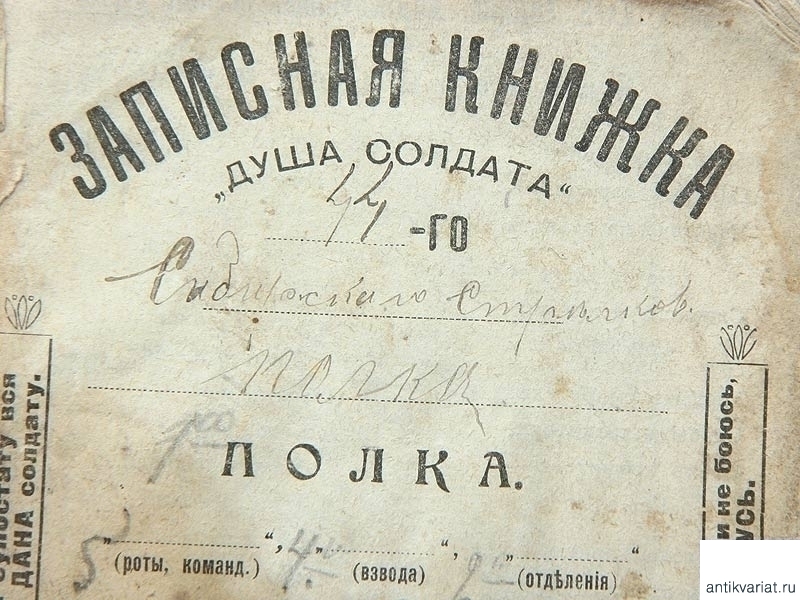 ЗАПИСНАЯ КНИЖКА
„ДУША СОЛДАТА“
44 -ГО
Сибирскаго Стрѣлков.
полка
ПОЛКА.
5 „ “, 4 „ “, „ “
(роты, команд.) (взвода) (отдѣленія)
супостату вся
ДАНА солдату.
и не боюсь,
усь.
antikvariat.ru